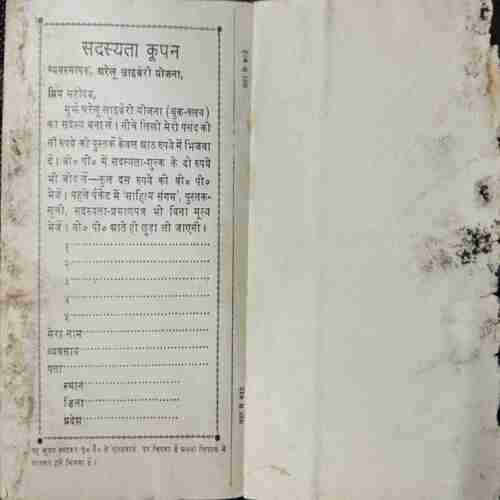 सदस्यता कूपन
व्यवस्थापक, घरेलू लाइब्रेरी योजना,
प्रिय महोदय,
मुझे घरेलू लाइब्रेरी योजना (बुक-क्लब)
का सदस्य बना लें। नीचे लिखी मेरी पसंद की
नौ रुपये की पुस्तकें केवल आठ रुपये में भिजवा
दें। वी० पी० में सदस्यता-शुल्क के दो रुपये
भी जोड़ लें—कुल दस रुपये की वी० पी०
भेजें। पहले पैकेट में 'साहित्य संगम', पुस्तक-
सूची, सदस्यता-प्रमाणपत्र भी बिना मूल्य
भेजें। वी० पी० आते ही छुड़ा ली जाएगी।
१
२
३
४
५
मेरा नाम
व्यवसाय
पता
स्थान
ज़िला
प्रदेश
यह कूपन काटकर पृ० के पर चिपका दें अथवा लिफाफे में